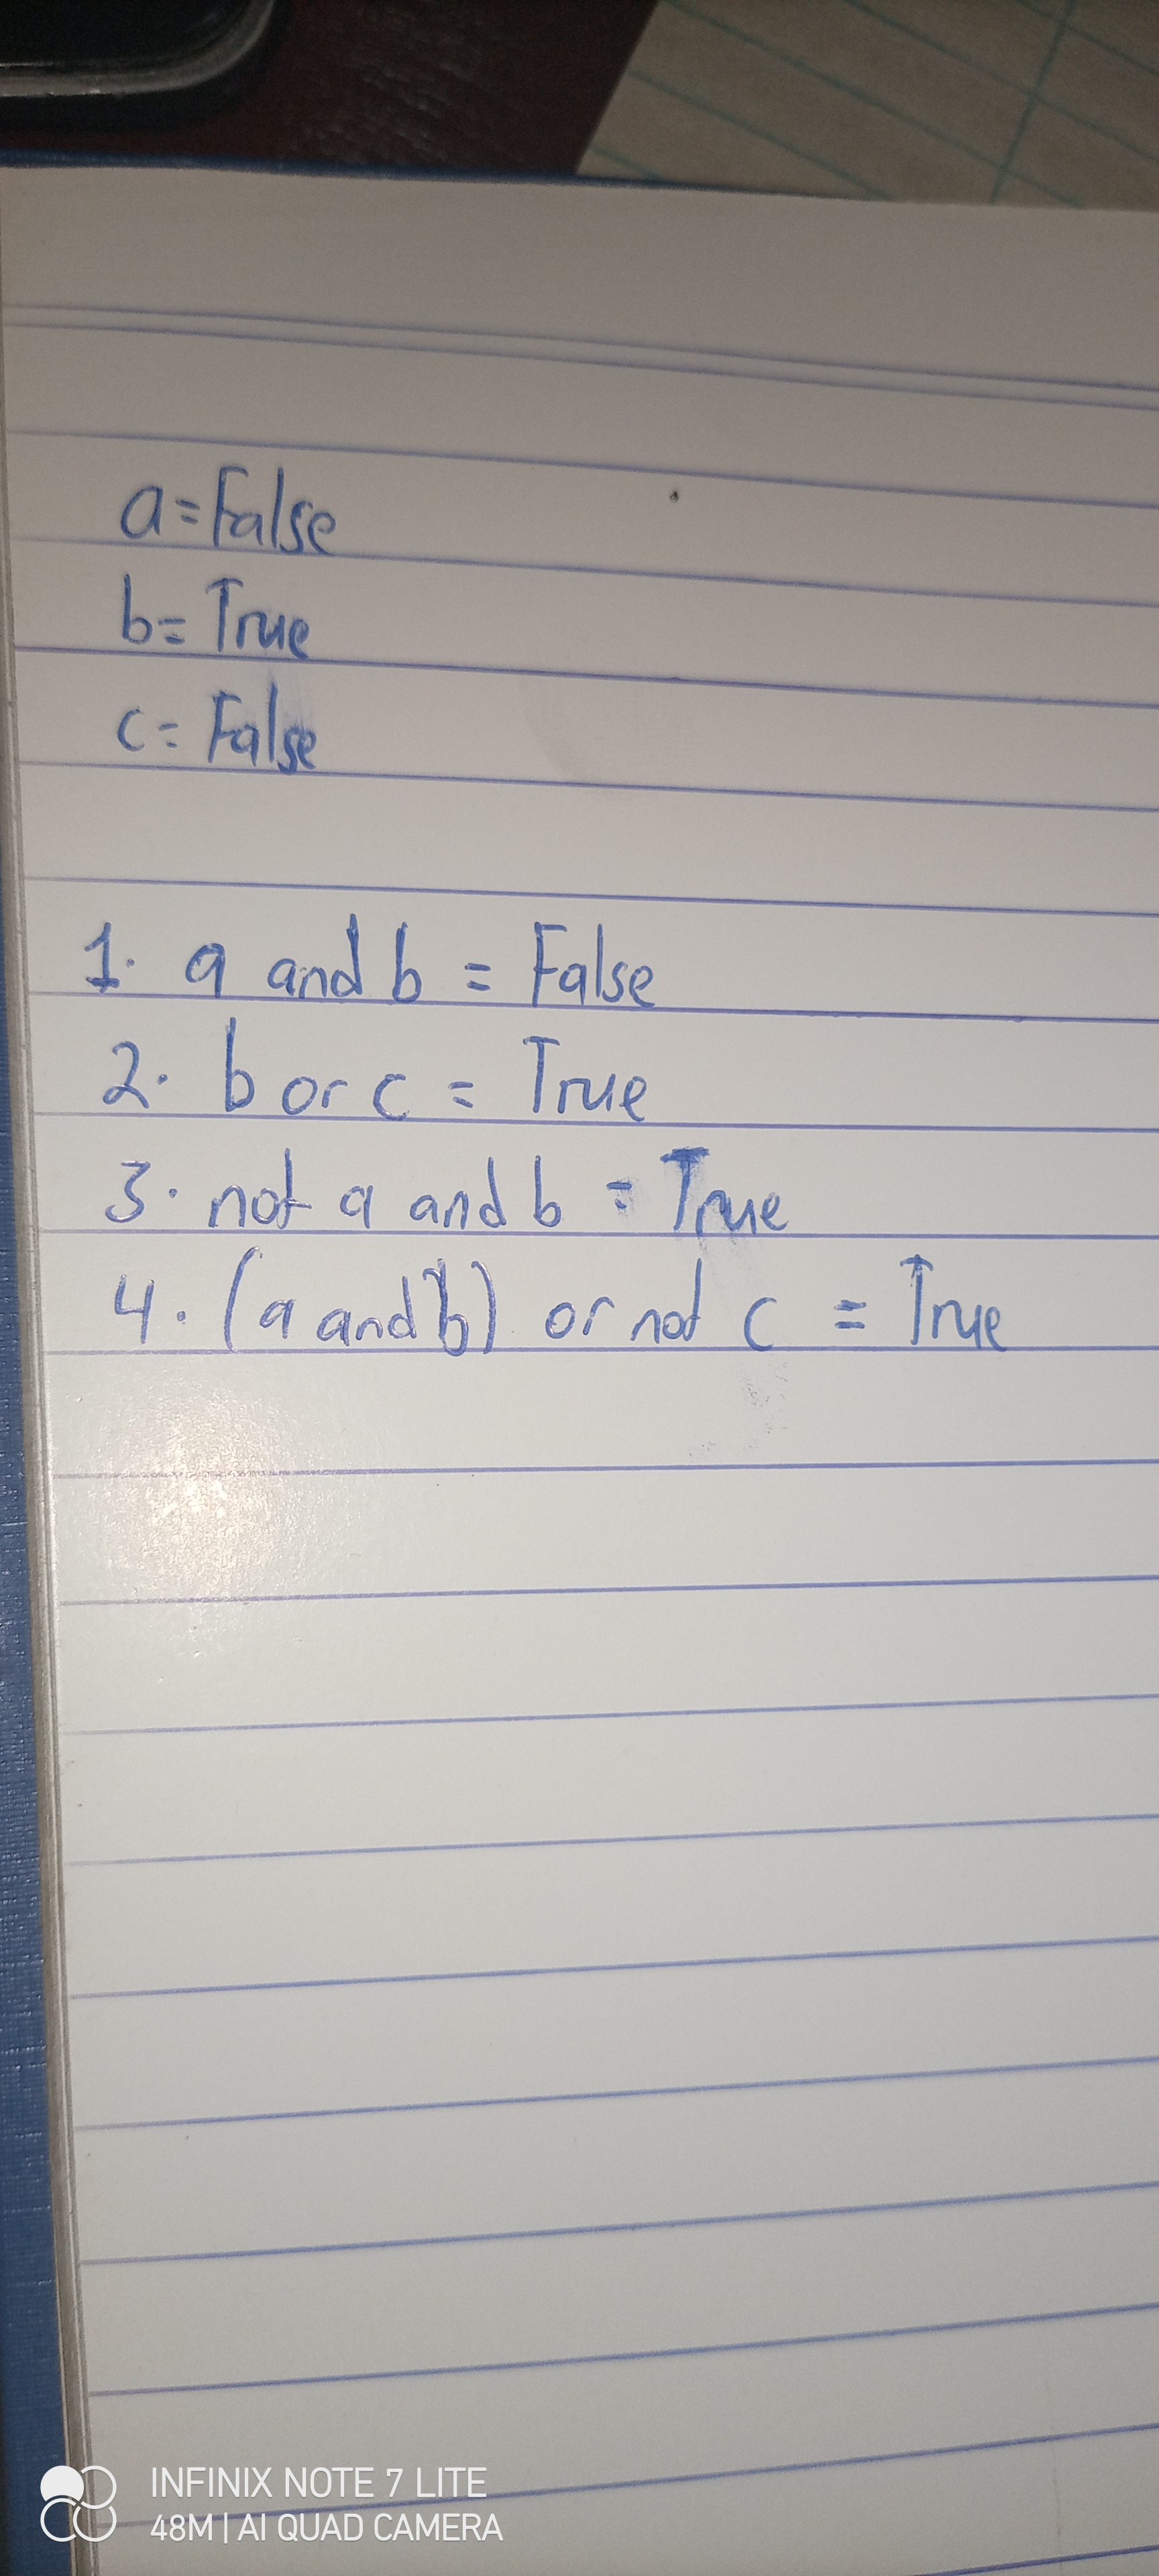 a=False
b= True
c= False
1. a and b = False
2. b or c = True
3. not a and b = True
4. (a and b) or not c = True
INFINIX NOTE 7 LITE
48M | AI QUAD CAMERA